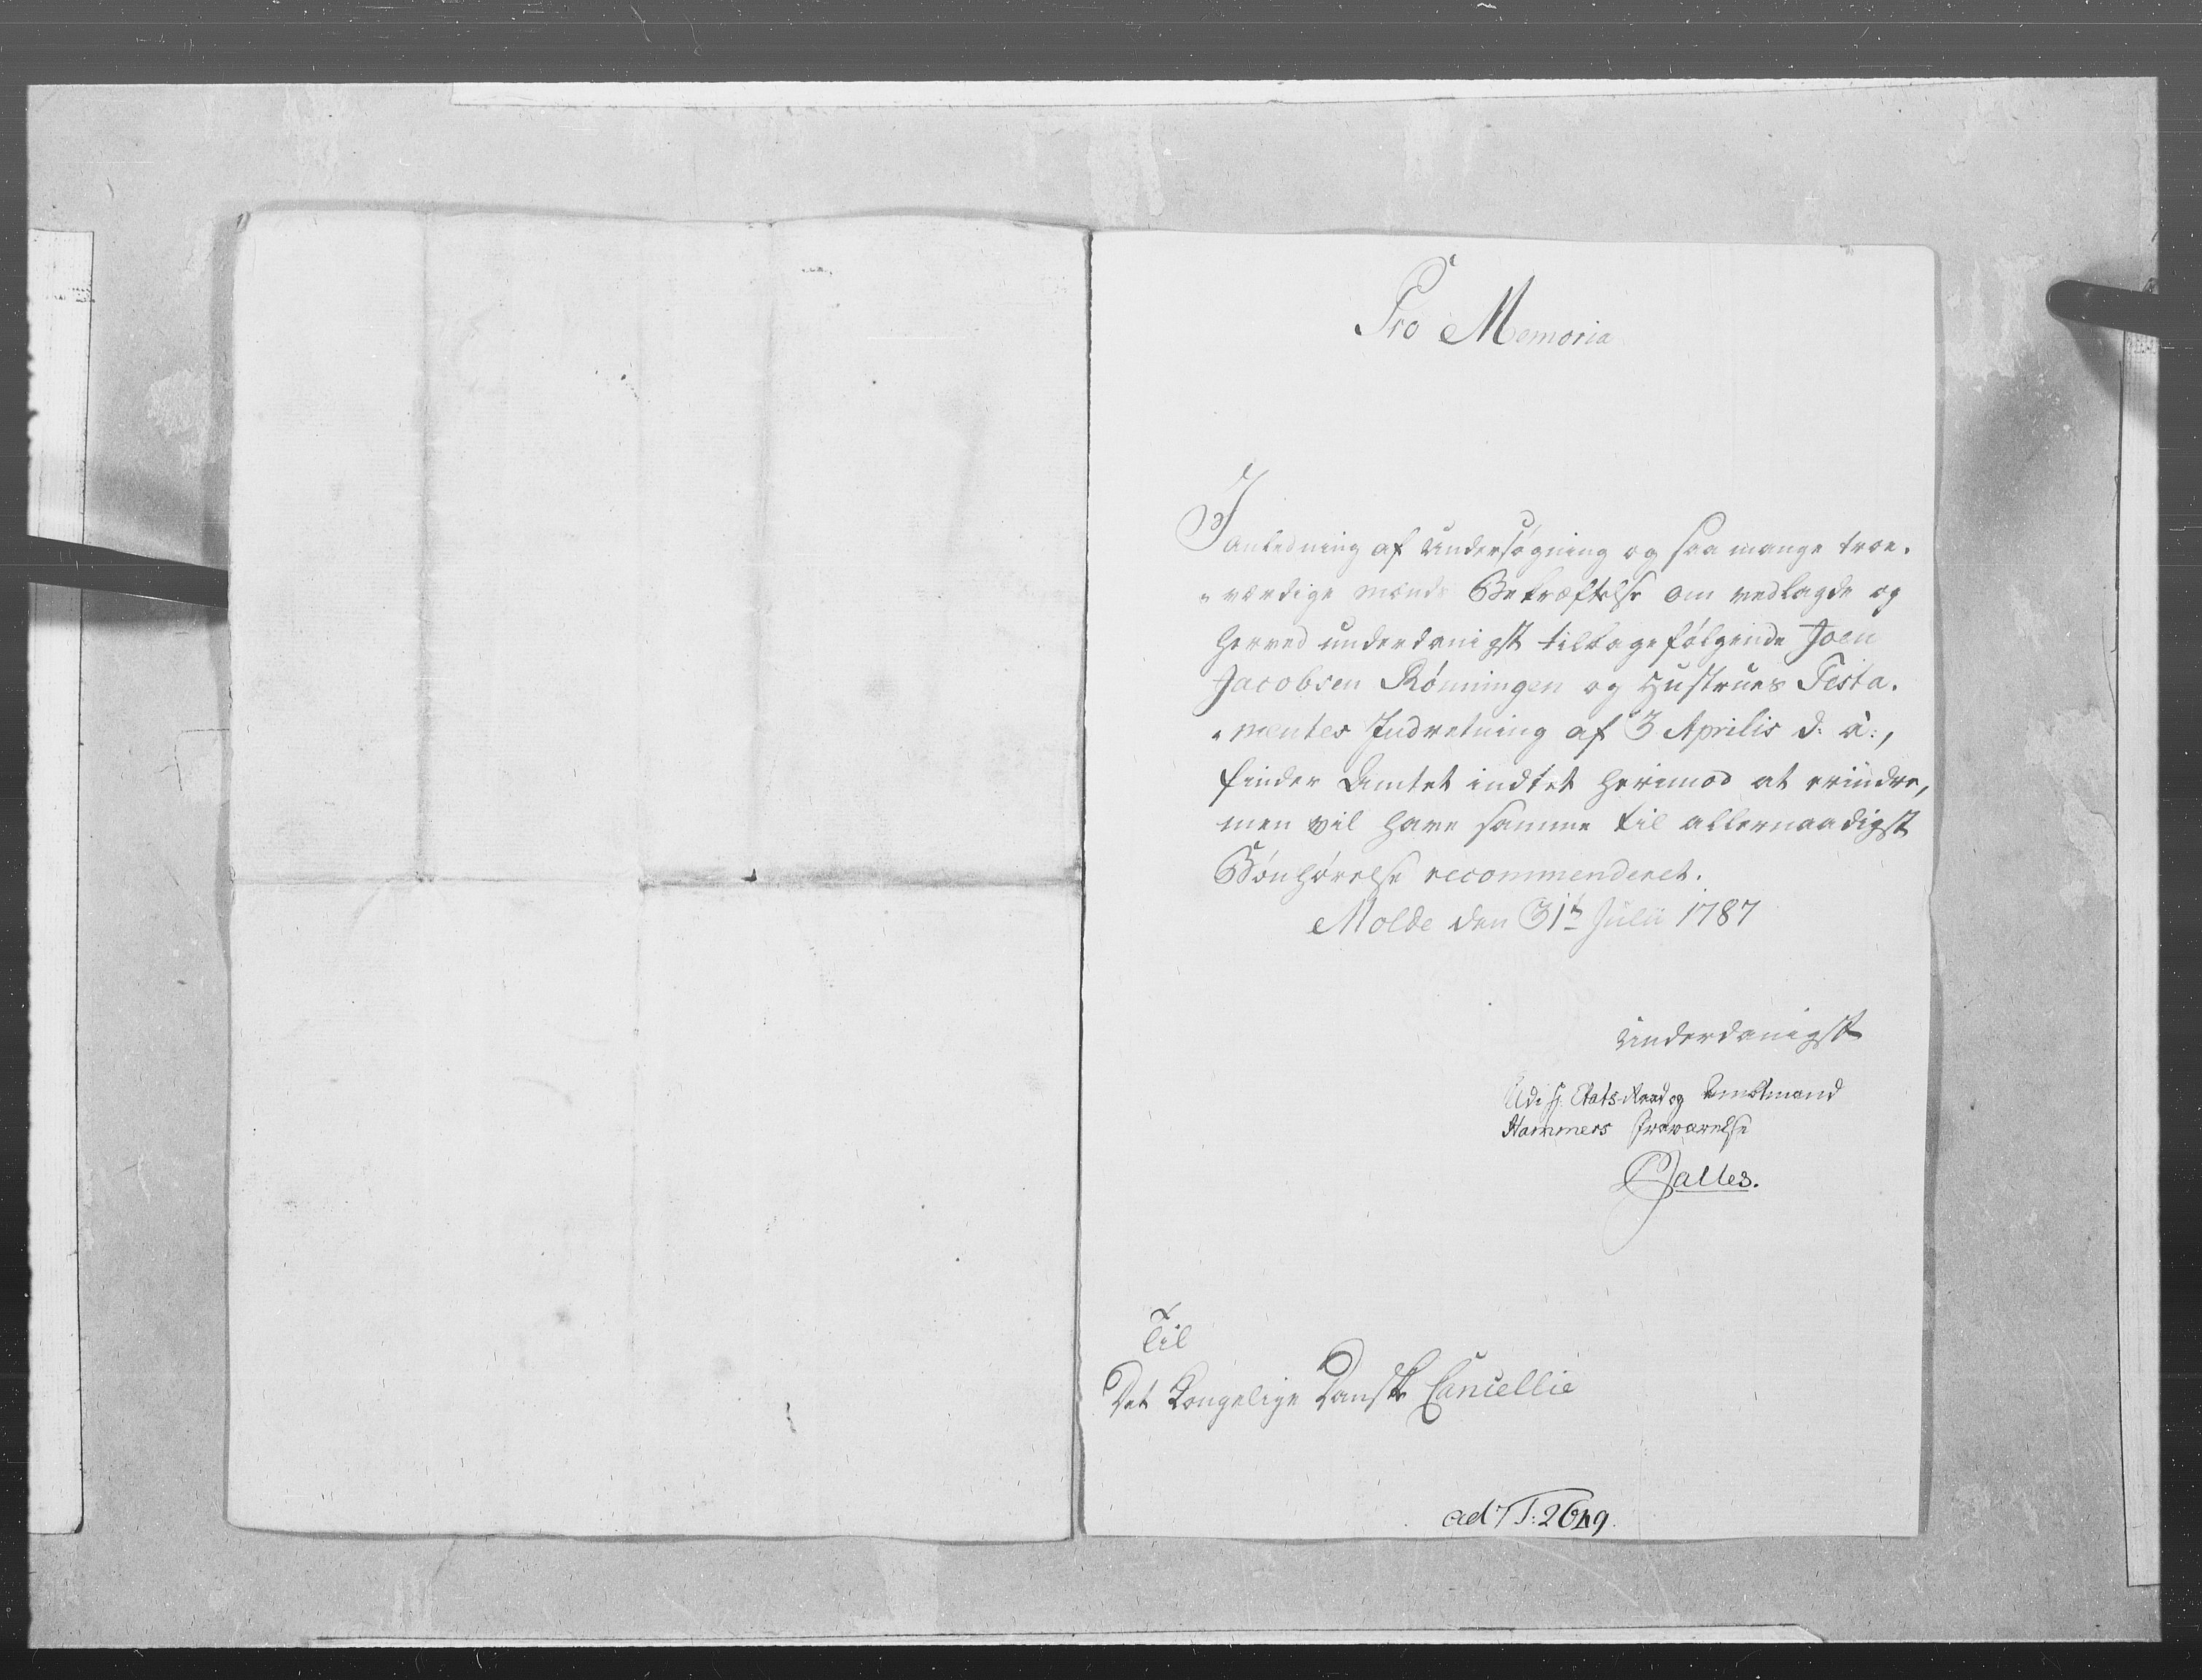 Pro Memoria
I anledning af Undersøgning og saa mange troe-
-værdige Mænds Bekræftelse om vedlagde og
herved underdanigst tilbagefølgende Joen
Jacobsen Rønningen og Hustrues Testa-
-mentes Indretning af 3 Aprilis d: a:,
finder Amtet indtet herimod at erindre,
men vil have samme til allernaadigst
Bønhørelse recommenderet.
Molde den 31te Julii 1787
Underdanigst
Udi H: Etats-Raad og Amtmand
Hammers fraværelse
Jalles.
Til
Det Kongelige Danske Cancellie